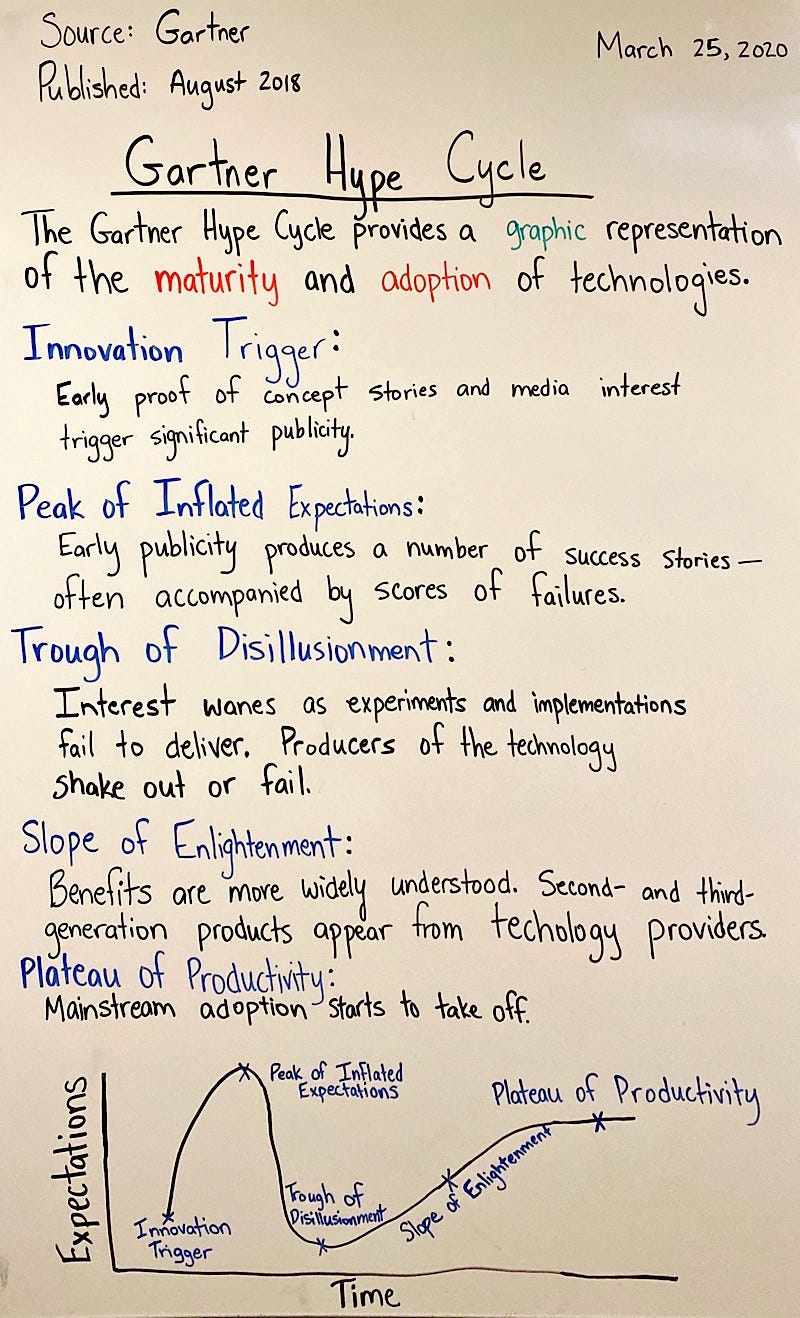 Source: Gartner
March 25, 2020
Published: August 2018
Gartner Hype Cycle
The Gartner Hype Cycle provides a graphic representation
of the maturity and adoption of technologies.
Innovation Trigger:
Early proof of concept stories and media interest
trigger significant publicity.
Peak of Inflated Expectations:
Early publicity produces a number of success stories —
often accompanied by scores of failures.
Trough of Disillusionment:
Interest wanes as experiments and implementations
fail to deliver. Producers of the technology
shake out or fail.
Slope of Enlightenment:
Benefits are more widely understood. Second- and third-
generation products appear from techology providers.
Plateau of Productivity:
Mainstream adoption starts to take off.
Expectations
Peak of Inflated
Expectations
Plateau of Productivity
Trough of
Disillusionment
Slope of Enlightenment
Innovation
Trigger
Time